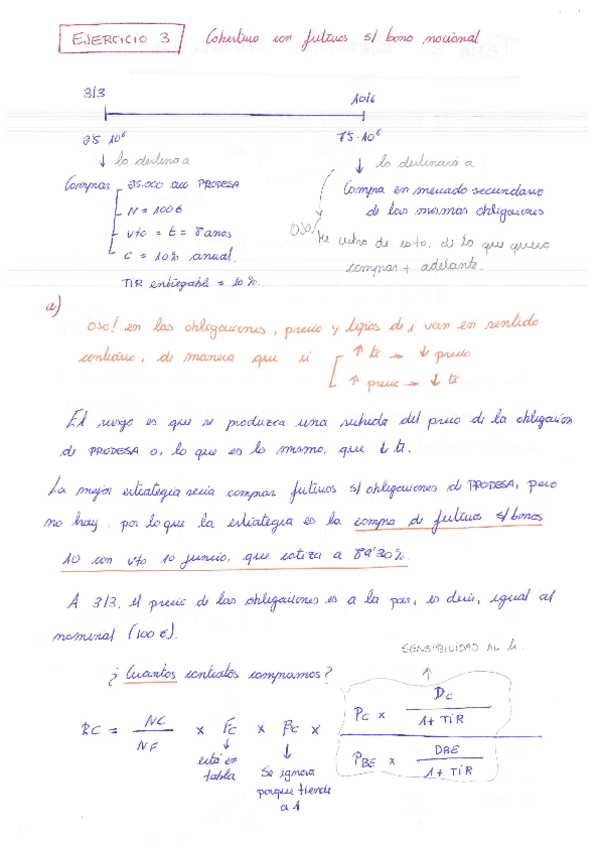 EJERCICIO 3 Cobertura con futuros s/ bono nocional
3/3 10/6
25·10⁶ 75·10⁶
↓ lo destina a ↓ lo destinará a
Comprar 25.000 PRODESA Compra en mercado secundario
N = 100€ de las mismas obligaciones
vto = t = 8 años OJO/ Me cubro de esto, de lo que quiero
c = 10% anual. comprar + adelante.
TIR entregable = 10%.
a)
OJO! en las obligaciones, precio y tipos de i van en sentido
contrario, de manera que si ↑ ti → ↓ precio
↑ precio → ↓ ti
El riesgo es que se produzca una subida del precio de la obligación
de PRODESA o, lo que es lo mismo, que ↓ ti.
La mejor estrategia sería comprar futuros s/ obligaciones de PRODESA, pero
no hay, por lo que la estrategia es la compra de futuros s/ bonos
10 con vto 10 junio, que cotiza a 89'30%.
A 3/3, el precio de las obligaciones es a la par, es decir, igual al
nominal (100€).
SENSIBILIDAD AL ti.
¿Cuantos contratos compramos?
RC = NC / NF × FC × βC × (PC × DC / 1 + TIR) / (PBE × DBE / 1 + TIR)
está en
tabla
Se ignora
porque tiende
a 1